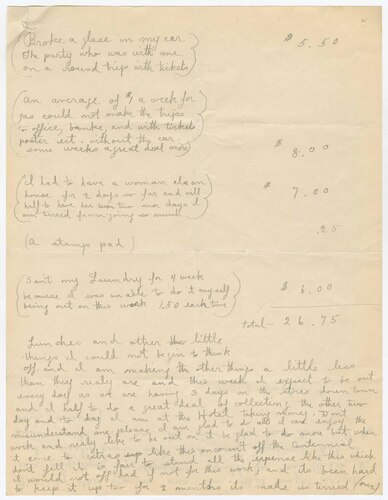 Broke a glass in my car
the party who was with me
on a round trip with tickets
$ 5.50
an average of $1 a week for
gas could not make the trips
to office, banke, and with tickets
poster ect. without the car
some weeks a great deal more
$ 8.00
I had to have a woman clean
house for 2 days so far and will
half to have her two more days I
am tirred from going so much
$ 7.00
(a stamps pad)
.25
Sent my Laundry for 4 week
because I was unable to do it myself
being out on this work 1,50 each time
$ 6.00
Total - 26.75
Lunches and other little
things I could not begin to think
off and I am making the other things a little less
than they realy are and this week I expect to be out
every day as we are having 3 days in the stores down town
and I half to do a great deal of collecting the other two
day and to day I am at the Hotel taking money. Do not
misunderstand me please I am glad to do all I can enjoy the
work and realy like to be out in it be glad to do more but when
it come to extras like this on account off the Centennial
don't fill it is fair to stand all the expense like this which
I would not off had if not for this work, and its been hard
to keep it up too for 2 months its made us tirred (over)